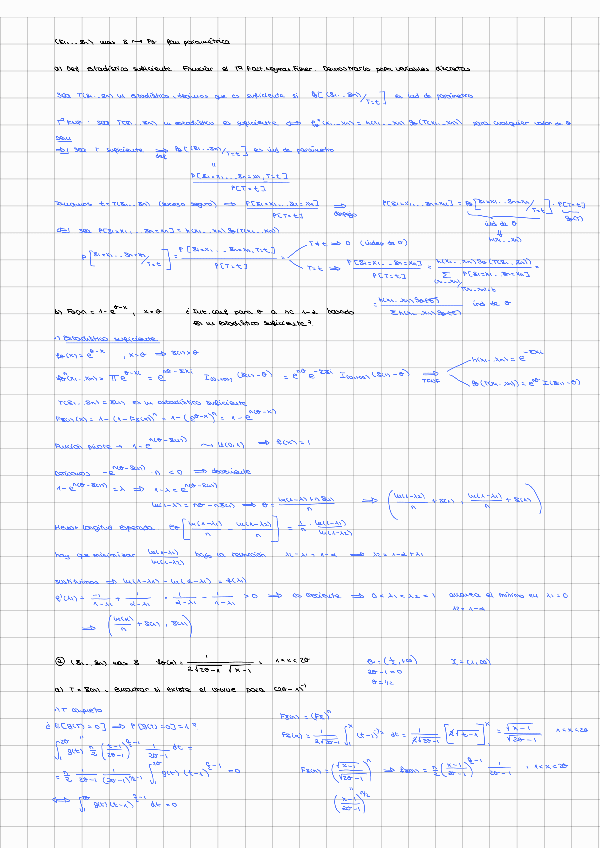 (X1...Xn) mas X ~> Fθ fam paramétrica
a) Def estadístico suficiente. Enunciar el Tª Fact. Neyman Fisher. Demostrarlo para variables discretas
Sea T(X1...Xn) un estadístico, decimos que es suficiente si Pθ[(X1...Xn)/T=t] es ind de parámetro
Tª Fact: Sea T(X1...Xn) un estadístico es suficiente ⟺ fθⁿ(x1...xn) = h(x1...xn) gθ(T(x1...xn)) para cualquier valor de θ
Dem
⟹) Sea T suficiente ⟹ Pθ[(X1...Xn)/T=t] es ind de parámetro
P[X1=x1...Xn=xn, T=t] / P[T=t]
Tomamos t=T(x1...xn) (suceso seguro) ⟹ P[X1=x1...Xn=xn] / P[T=t] ⟹ P[X1=x1...Xn=xn] = Pθ[X1=x1...Xn=xn/T=t] · P[T=t]
ind de θ
h(x1...xn)
⟸) Sea P[X1=x1...Xn=xn] = h(x1...xn) gθ(T(x1...xn))
P[X1=x1...Xn=xn/T=t] = P[X1=x1...Xn=xn, T=t] / P[T=t]
T≠t ⟹ 0 (indep de θ)
T=t ⟹ P[X1=x1...Xn=xn] / P[T=t] = h(x1...xn) gθ(T(x1...xn)) / Σ P[X1=x1...Xn=xn] =
= h(x1...xn) gθ(t) / Σ h(x1...xn) gθ(t) ind de θ
b) Fθ(x) = 1-e^(θ-x), x>θ ¿Int. conf para θ a nc 1-α basado
en un estadístico suficiente?
·) Estadístico suficiente
fθ(x) = e^(θ-x), x>θ ⟹ X(1)>θ
T(X1...Xn) = X(1) es un estadístico suficiente
F X(1)(x) = 1-(1-Fθ(x))ⁿ = 1-(e^(θ-x))ⁿ = 1-e^(n(θ-x))
Función pivote → 1-e^(n(θ-X(1))) ~> U(0,1) ⟹ f(x)=1
1-e^(n(θ-X(1))) = λ ⟹ 1-λ = e^(n(θ-X(1)))
ln(1-λ) = nθ-nX(1) ⟹ θ = (ln(1-λ)+nX(1))/n ⟹ (ln(1-λ2)/n + X(1), ln(1-λ1)/n + X(1))
Menor longitud esperada Eθ[ln(1-λ1)/n - ln(1-λ2)/n] = 1/n · ln(1-λ1)/ln(1-λ2)
hay que minimizar ln(1-λ1)/ln(1-λ2) bajo la restricción λ2-λ1 = 1-α ⟹ λ2 = 1-α+λ1
Sustituimos ⟹ ln(1-λ1) - ln(α-λ1) = f(λ1)
f'(λ1) = -1/(1-λ1) + 1/(α-λ1) = 1/(α-λ1) - 1/(1-λ1) > 0 ⟹ es creciente ⟹ 0≤λ1<λ2≤1 alcanza el mínimo en λ1=0
λ2=1-α
⟹ (ln(α)/n + X(1), X(1))
② (X1...Xn) mas X fθ(x) = 1/(2√(2θ-1) √(x-1)), 1<x<2θ
Θ = (1/2, +∞)
2θ-1=0
θ=1/2
X=(1,2θ)
a) T = X(n). Encontrar si existe el UMVUE para (2θ-1)⁻¹
·) T completo
¿E[g(T)=0] ⟹ P[g(T)=0]=1?
∫₁^2θ g(t) n/2 ((t-1)/(2θ-1))^(n/2-1) 1/(2θ-1) dt =
= n/2 1/(2θ-1) 1/(2θ-1)^(n/2-1) ∫₁^2θ g(t) (t-1)^(n/2-1) = 0
⟺ ∫₁^2θ g(t)(t-1)^(n/2-1) dt = 0
F X(n)(x) = (Fθ)ⁿ
Fθ(x) = 1/(2√(2θ-1)) ∫₁^x (t-1)^(-1/2) dt = 1/(2√(2θ-1)) [2√(t-1)]₁^x = √(x-1)/√(2θ-1), 1<x<2θ
F X(n)(x) = (√(x-1)/√(2θ-1))ⁿ ⟹ f X(n)(x) = n/2 ((x-1)/(2θ-1))^(n/2-1) 1/(2θ-1), 1<x<2θ
((x-1)/(2θ-1))^(n/2)